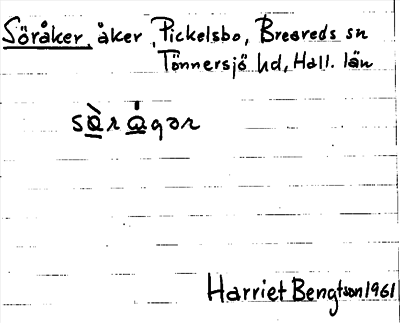 Söråker, åker, Pickelsbo, Breareds sn
Tönnersjö hd, Hall. län
sò̠rȧ̠gər
Harriet Bengtson 1961